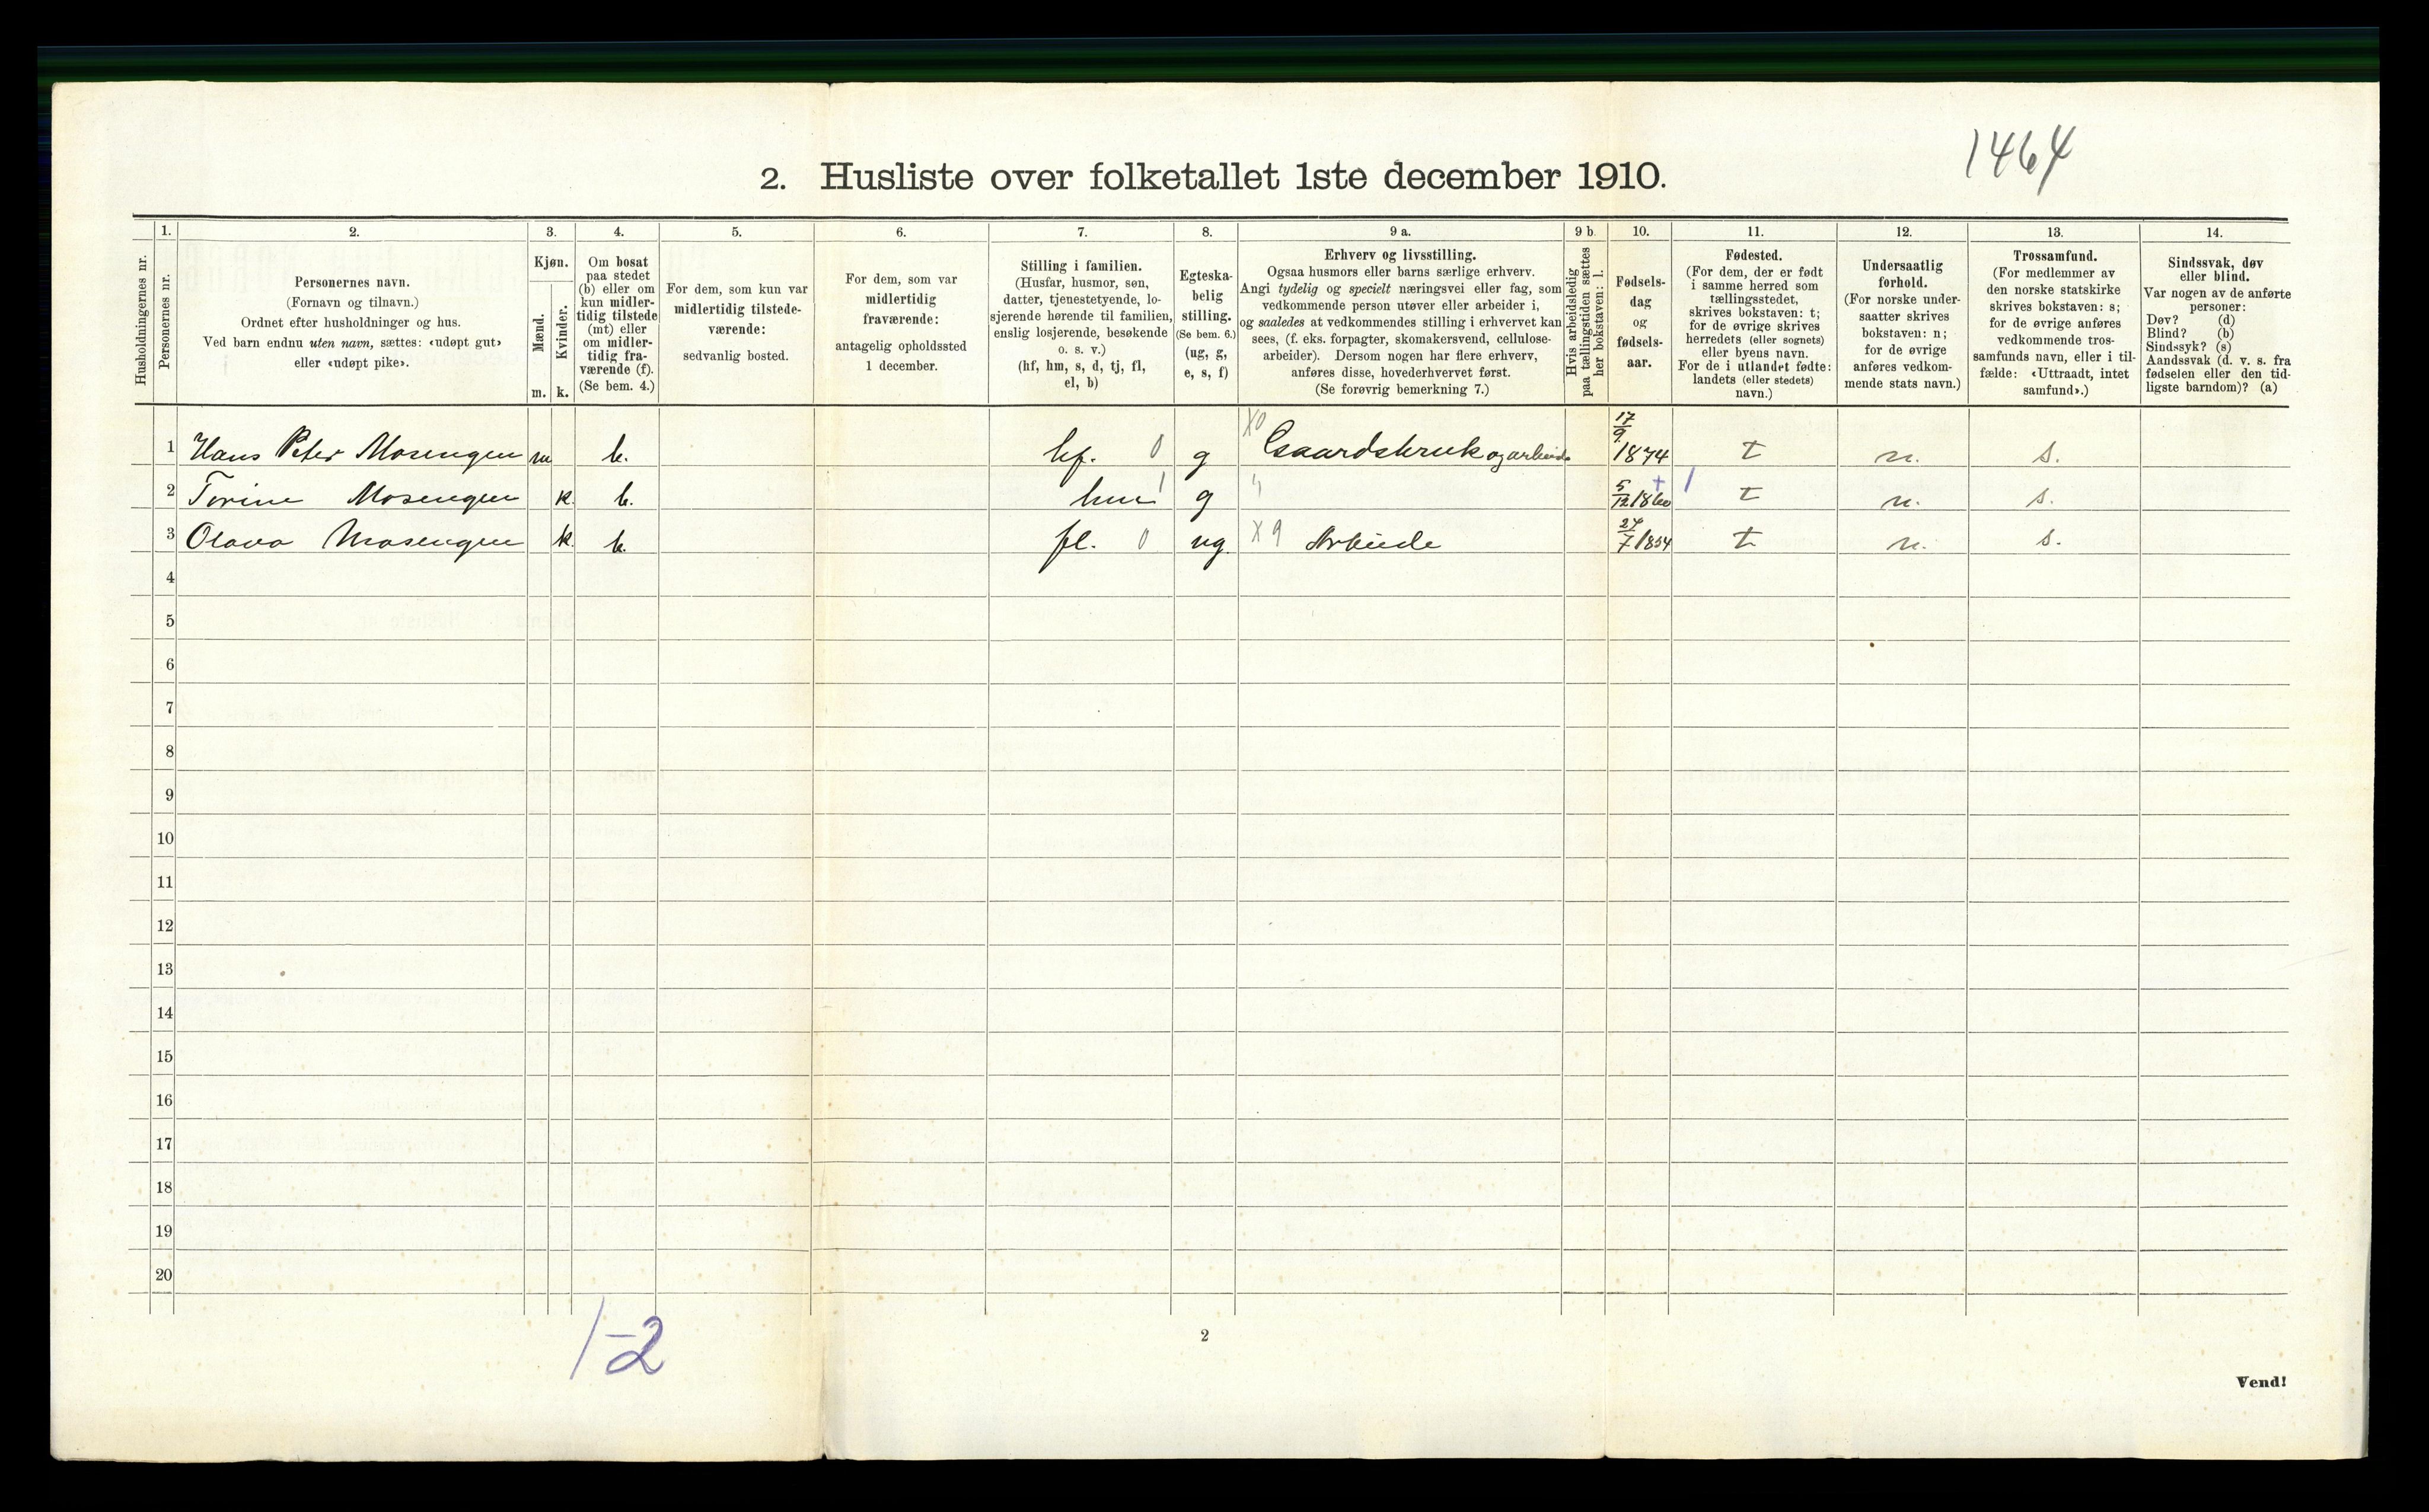 1464
2. Husliste over folketallet 1ste december 1910.
Husholdningernes nr.
1. Personernes nr.
2. Personernes navn.
(Fornavn og tilnavn.)
Ordnet efter husholdninger og hus.
Ved barn endnu uten navn, sættes: «udøpt gut»
eller «udøpt pike».
3. Kjøn.
Mænd. m.
Kvinder. k.
4. Om bosat
paa stedet
(b) eller om
kun midler-
tidig tilstede
(mt) eller
om midler-
tidig fra-
værende (f).
(Se bem. 4.)
5. For dem, som kun var
midlertidig tilstede-
værende:
sedvanlig bosted.
6. For dem, som var
midlertidig
fraværende:
antagelig opholdssted
1 december.
7. Stilling i familien.
(Husfar, husmor, søn,
datter, tjenestetyende, lo-
sjerende hørende til familien,
enslig losjerende, besøkende
o. s. v.)
(hf, hm, s, d, tj, fl,
el, b)
8. Egteska-
belig
stilling.
(Se bem. 6.)
(ug, g,
e, s, f)
9 a. Erhverv og livsstilling.
Ogsaa husmors eller barns særlige erhverv.
Angi tydelig og specielt næringsvei eller fag, som
vedkommende person utøver eller arbeider i,
og saaledes at vedkommendes stilling i erhvervet kan
sees, (f. eks. forpagter, skomakersvend, cellulose-
arbeider). Dersom nogen har flere erhverv,
anføres disse, hovederhvervet først.
(Se forøvrig bemerkning 7.)
9 b. Hvis arbeidsledig
paa tællingstiden sættes
her bokstaven: l.
10. Fødsels-
dag
og
fødsels-
aar.
11. Fødested.
(For dem, der er født
i samme herred som
tællingsstedet,
skrives bokstaven: t;
for de øvrige skrives
herredets (eller sognets)
eller byens navn.
For de i utlandet fødte:
landets (eller stedets)
navn.)
12. Undersaatlig
forhold.
(For norske under-
saatter skrives
bokstaven: n;
for de øvrige
anføres vedkom-
mende stats navn.)
13. Trossamfund.
(For medlemmer av
den norske statskirke
skrives bokstaven: s;
for de øvrige anføres
vedkommende tros-
samfunds navn, eller i til-
fælde: «Uttraadt, intet
samfund».)
14. Sindssvak, døv
eller blind.
Var nogen av de anførte
personer:
Døv? (d)
Blind? (b)
Sindssyk? (s)
Aandssvak (d. v. s. fra
fødselen eller den tid-
ligste barndom)? (a)
1 Hans Peter Mosengen m b. hf. 0 g X0 Gaardsbruk og arbeide 17/9 1874 t n. s.
2 Torine Mosengen k. b. hm 1 g 5/12 1860 + 1 t n. s.
3 Olava Mosengen k. b. fl. 0 ug. X 9 Arbeide 24/7 1854 t n. s.
4
5
6
7
8
9
10
11
12
13
14
15
16
17
18
19
20
1-2
2
Vend!